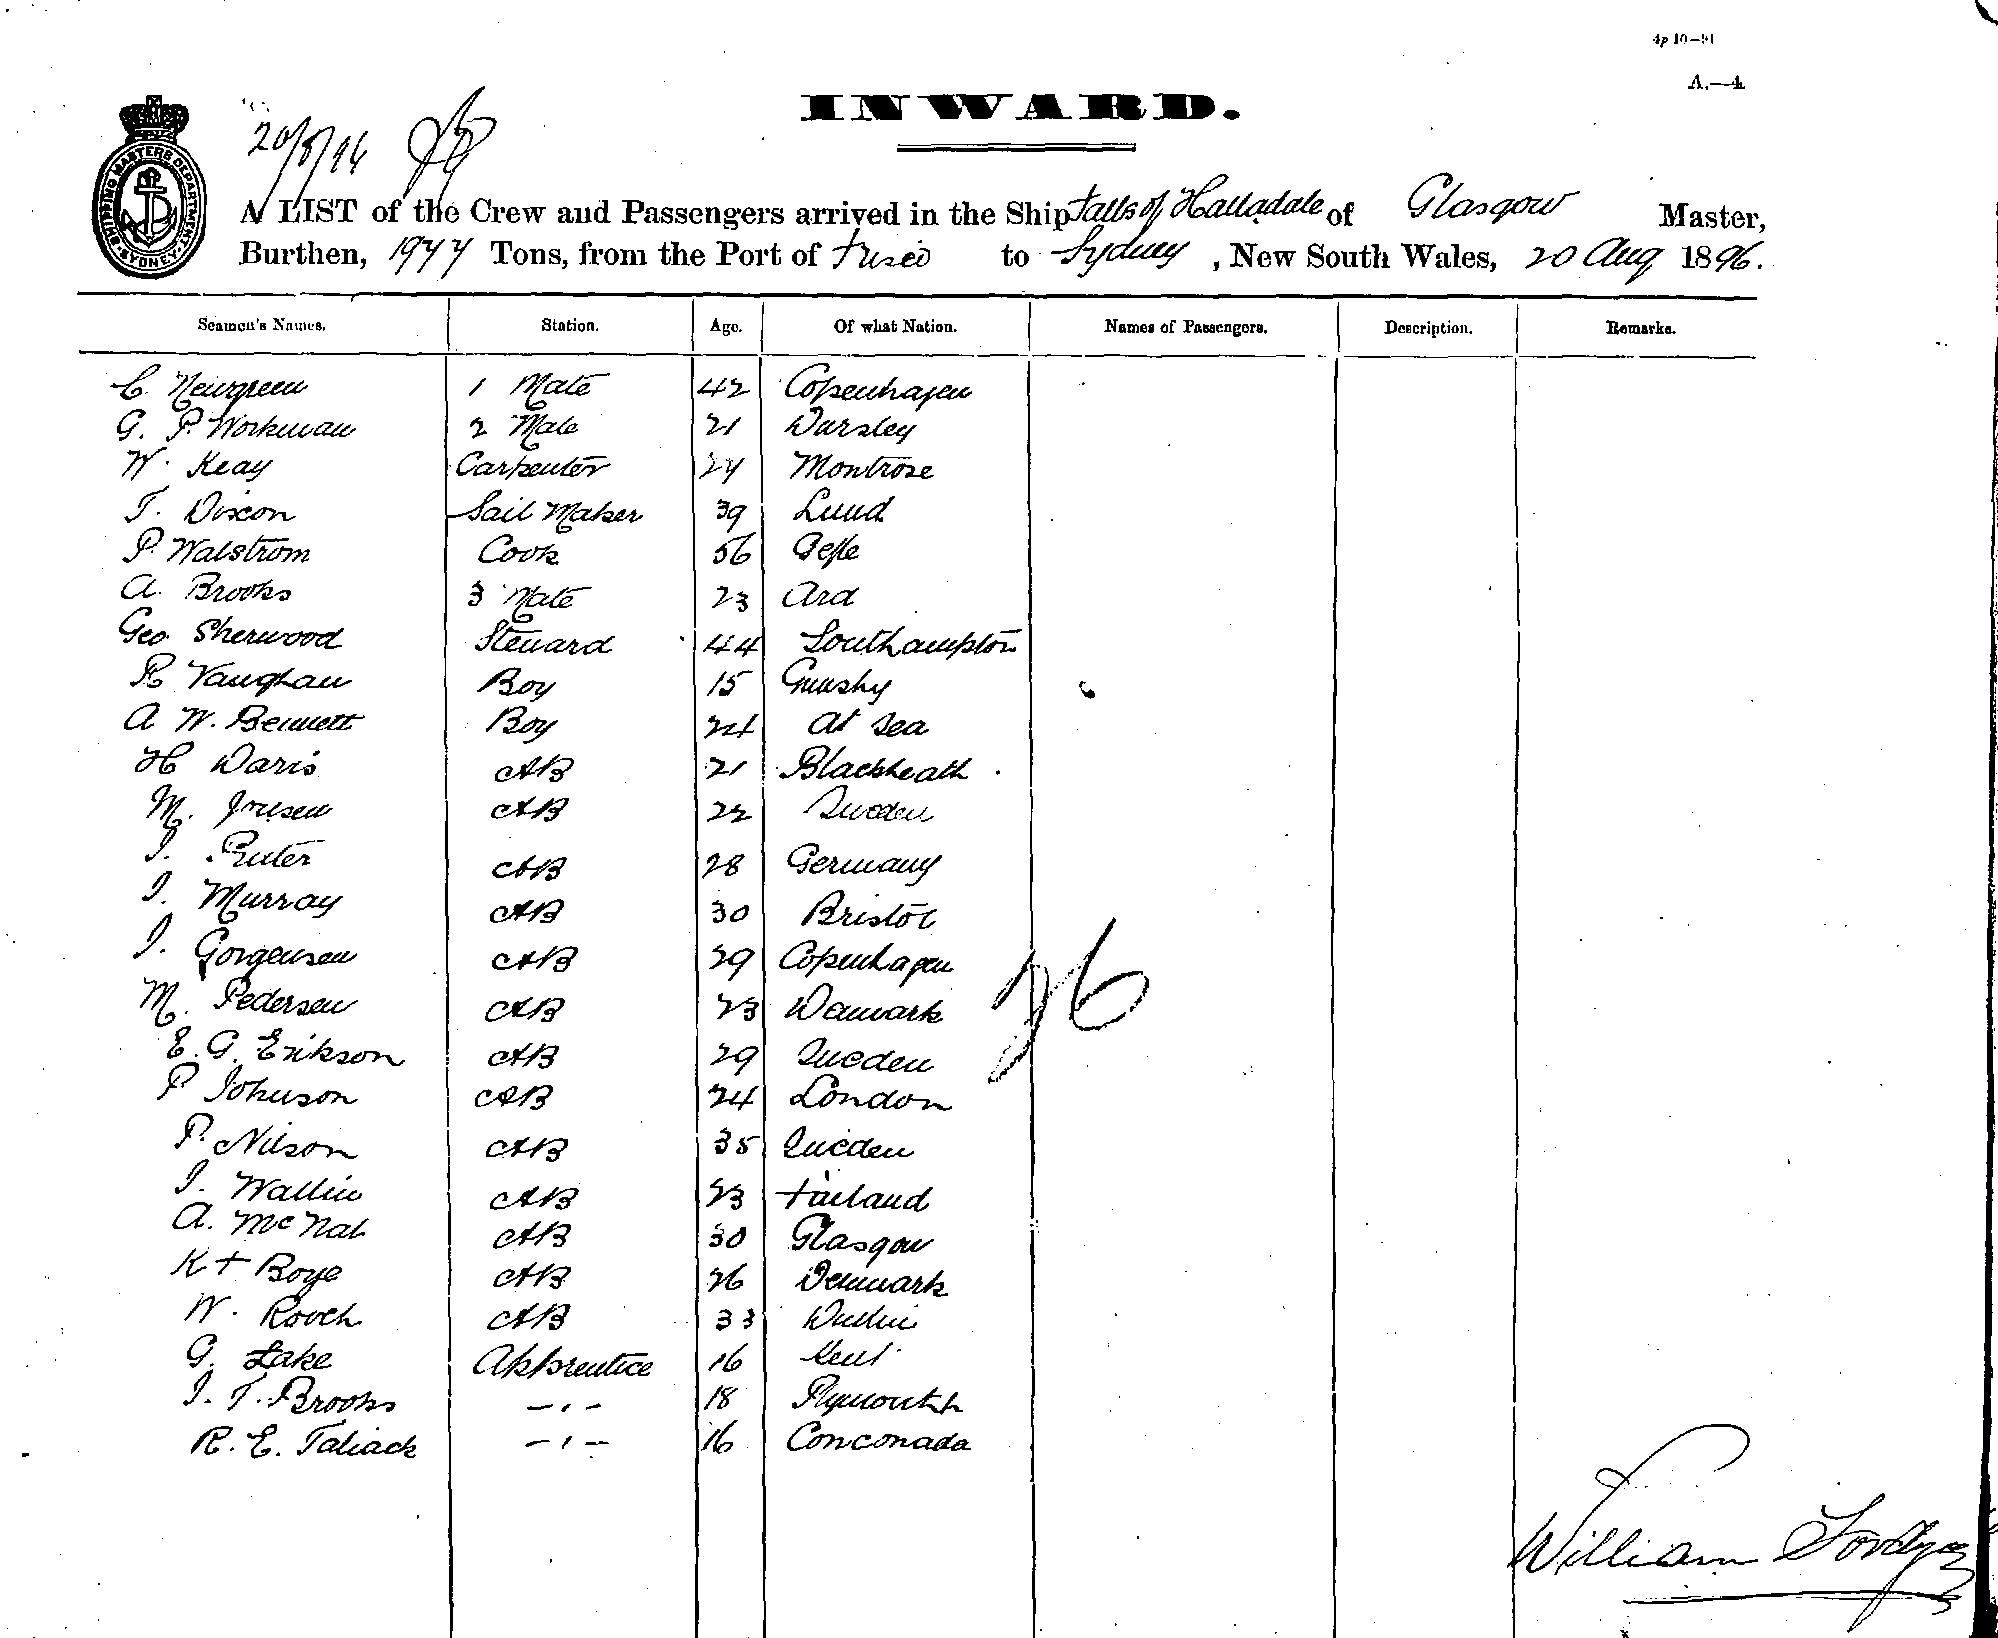 4p 10—91
A.—4
INWARD.
SHIPPING MASTERS DEPARTMENT SYDNEY
20/8/96
A LIST of the Crew and Passengers arrived in the Ship Falls of Halladale of Glasgow Master,
Burthen, 1977 Tons, from the Port of Frisco to Sydney, New South Wales, 20 Aug 1896.
Seamen's Names. Station. Age. Of what Nation. Names of Passengers. Description. Remarks.
C Newgreen 1 Mate 42 Copenhagen
G. P. Workman 2 Mate 21 Dursley
W. Keay Carpenter 27 Montrose
T. Dixon Sail Maker 39 Lund
P. Walstrom Cook 56 Gefle
A. Brooks 3 Mate 23 Ard
Geo Sherwood Steward 44 Southampton
R Vaughan Boy 15 Grimsby
A W. Bennett Boy 24 At Sea
H Davis AB 21 Blackheath
M. Jensen AB 22 Sweden
J. AB 28 Germany
J. Murray AB 30 Bristol
J. Gorgensen AB 29 Copenhagen
M. Pedersen AB 23 Denmark
E. G. Erikson AB 29 Sweden
P Johnson AB 24 London
P. Nilson AB 35 Sweden
J. Wallin AB 23 Finland
A. McNab AB 30 Glasgow
K F Boye AB 26 Denmark
W. Rooch AB 33 Dublin
G. Lake Apprentice 16 Kent
J. T. Brooks —"— 18 Plymouth
R. E. Taliack —"— 16 Conconada
26
William Fordyce